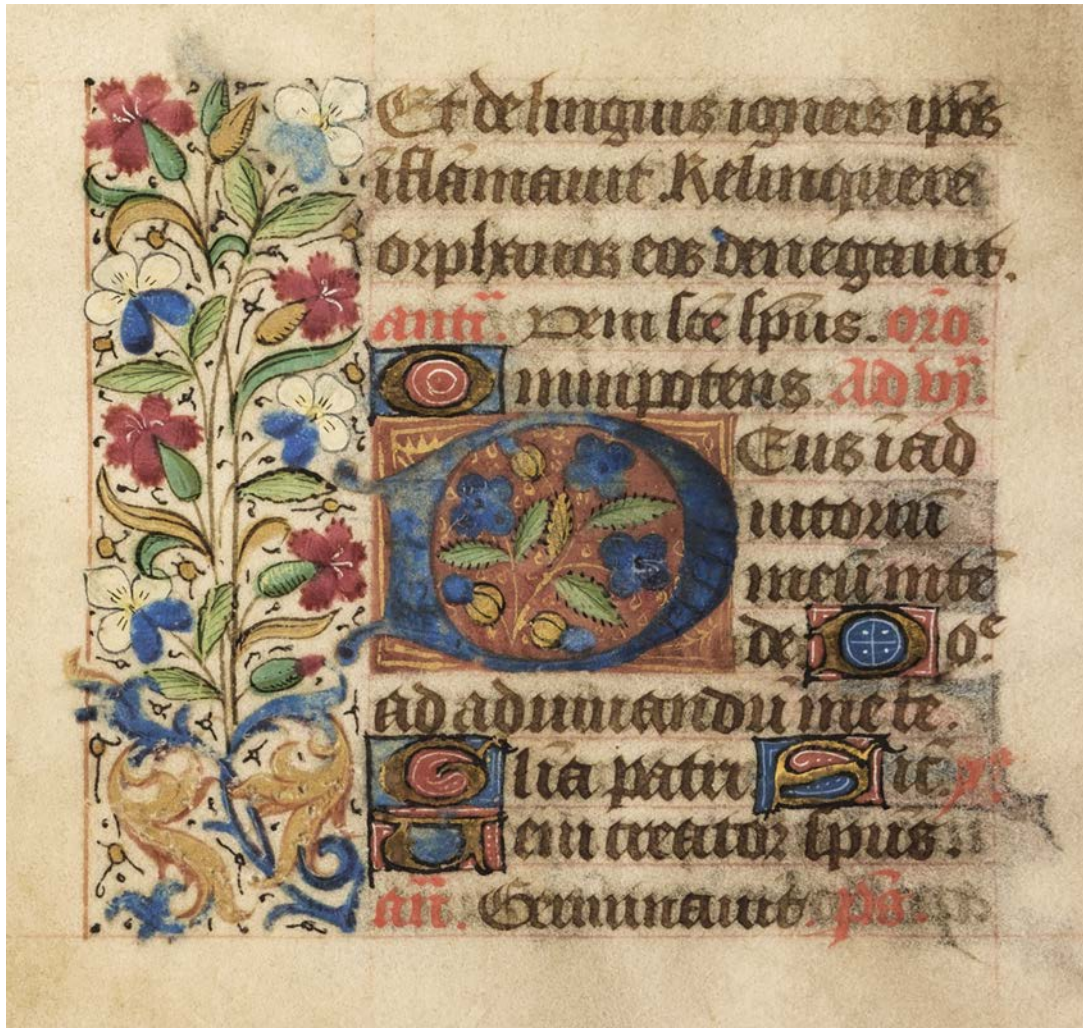 Et de linguis igneis ip̄os
īflāmauit Relinquere
orphanos eos denegauit.
anti. Ueni scē sp̄us. orō.
Omnipotens. Ad vj.
Deus ī ad
iutoriū
meū īnte
de Do⁹
ad adiuuandū me fe.
Glīa patri. Sic̄.
Ueni creator sp̄us.
añ. Germinauit. p̄s.